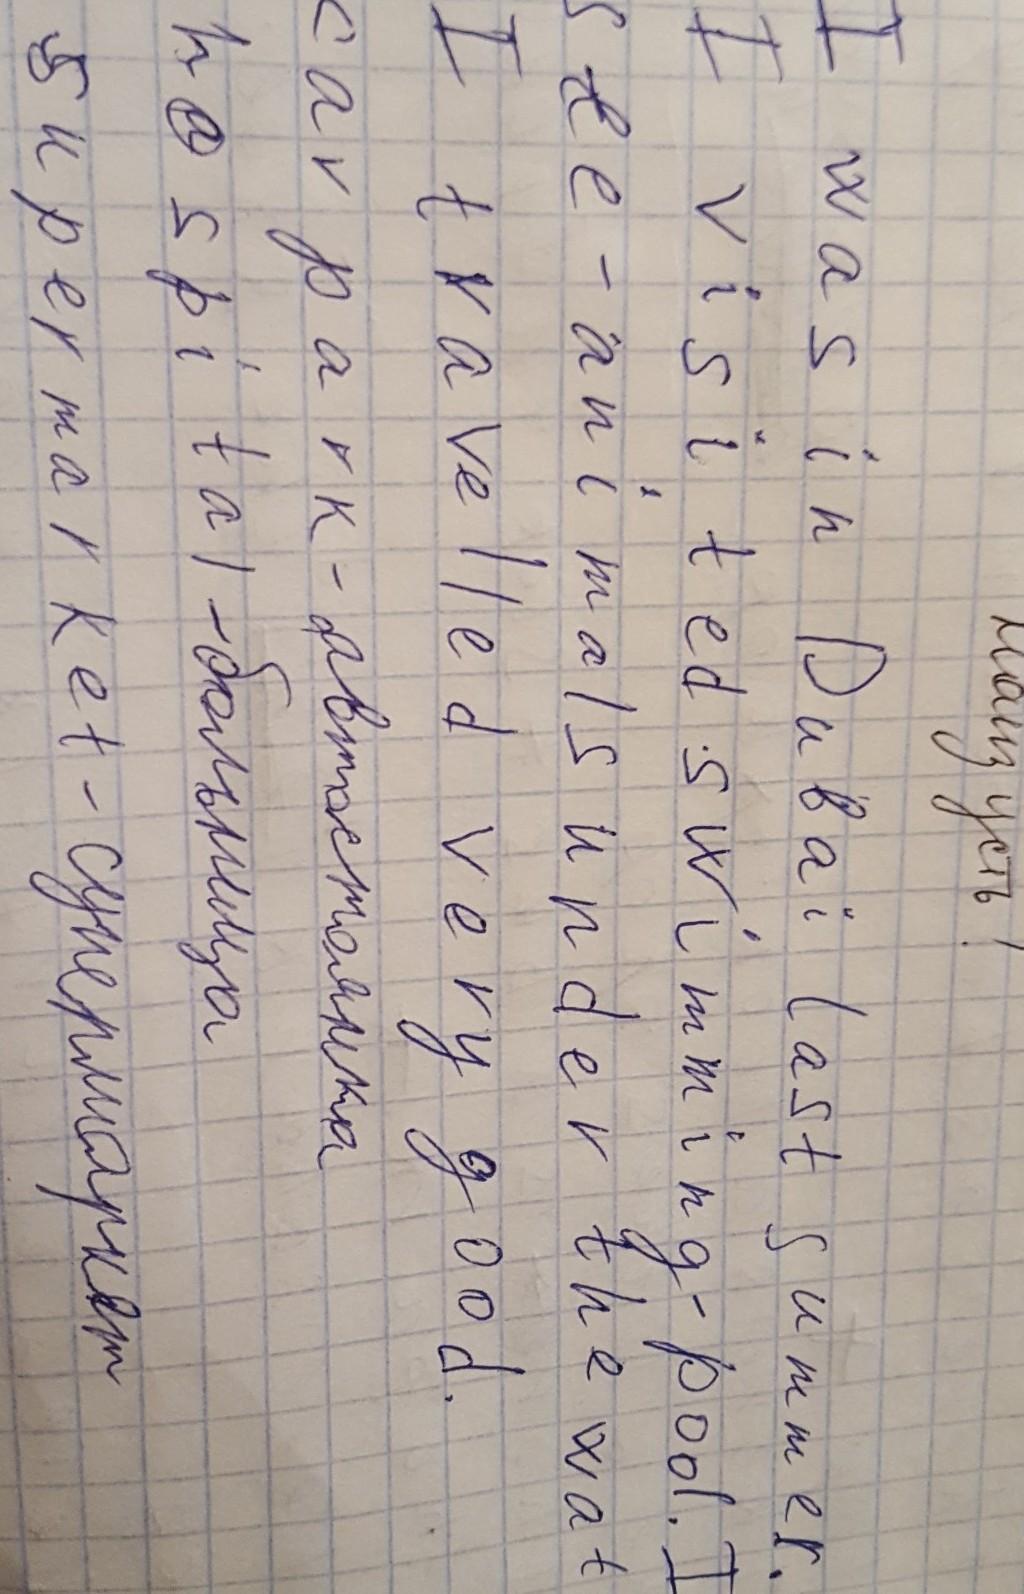 наизусть!
I was in Dubai last summer.
I visited swimming-pool. I
see-animals under the wat
I travelled very good.
car park-автостоянка
hospital-больница
supermarket-супермаркет